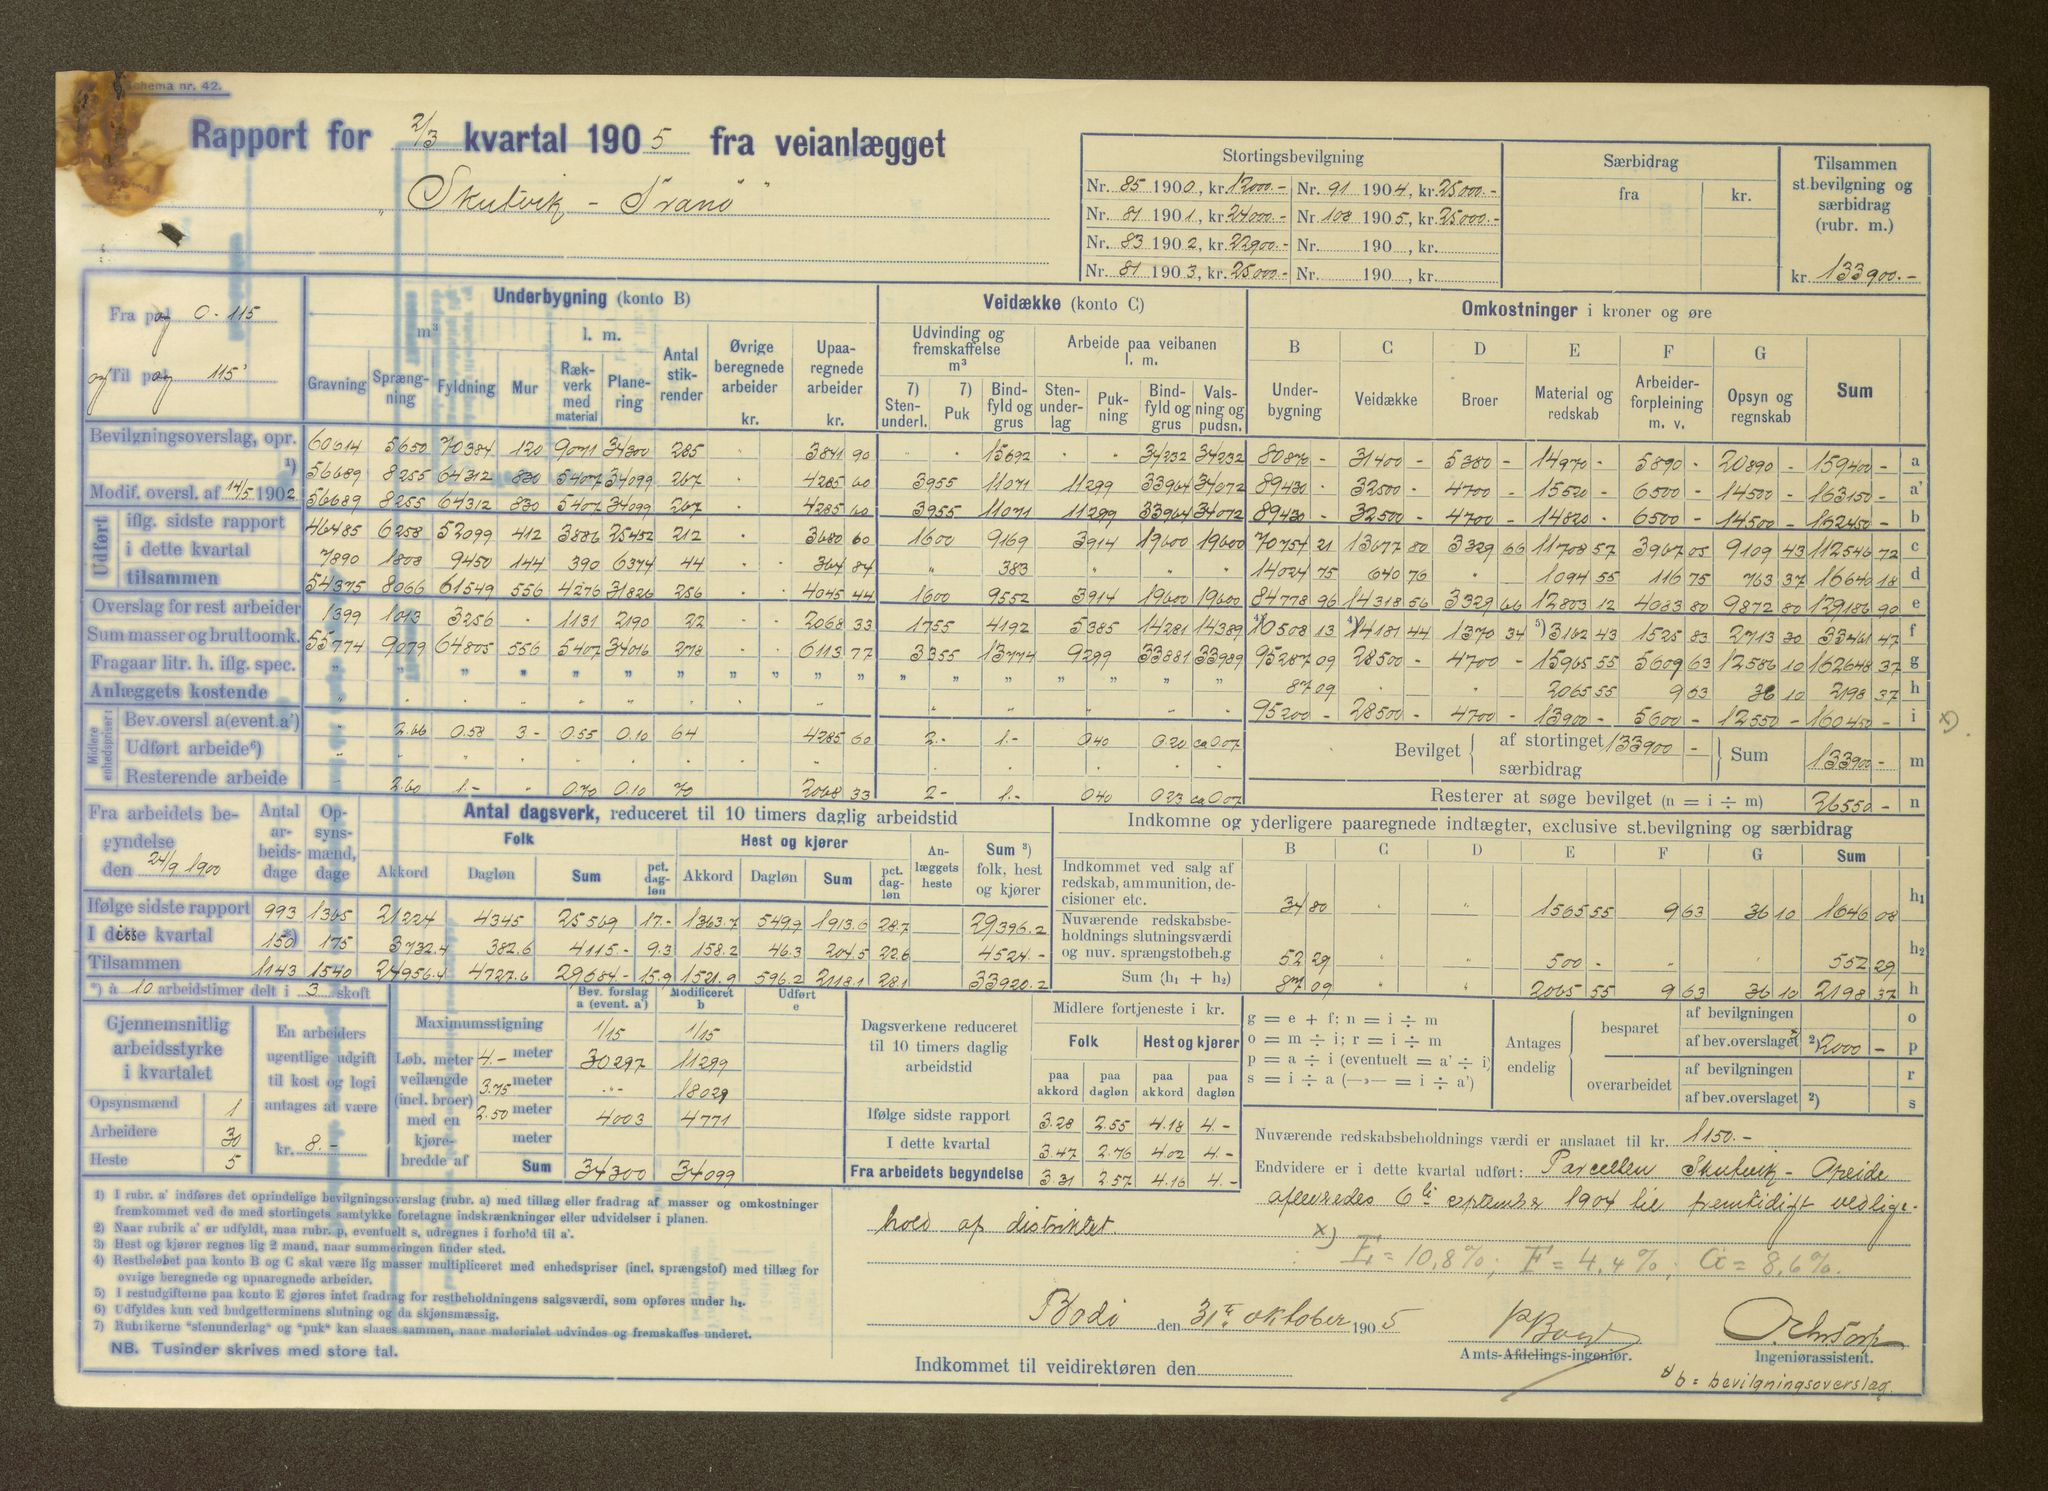 Schema nr. 42.
Rapport for 2/3 kvartal 1905 fra veianlægget
„Skutvik – Tranö"
Stortingsbevilgning
Nr. 85 1900, kr. 12000.- Nr. 91 1904, kr. 25000.-
Nr. 81 1901, kr. 24000.- Nr. 108 1905, kr. 25000.-
Nr. 83 1902, kr. 22900.- Nr. 190 , kr.
Nr. 81 1903, kr. 25000.- Nr. 190 , kr.
Særbidrag
fra kr.
Tilsammen
st.bevilgning og
særbidrag
(rubr. m.)
kr. 133900.-
Fra pel og 0 - 115
og Til pel og 115
Underbygning (konto B)
m³ l. m.
Gravning Sprængning Fyldning Mur Rækverk med material Planering Antal stikrender Øvrige beregnede arbeider kr. Upaaregnede arbeider kr.
Veidække (konto C)
Udvinding og fremskaffelse m³ Arbeide paa veibanen l. m.
7) Stenunderl. 7) Puk Bindfyld og grus Stenunderlag Pukning Bindfyld og grus Valsning og pudsn.
Omkostninger i kroner og øre
B C D E F G Sum
Underbygning Veidække Broer Material og redskab Arbeiderforpleining m. v. Opsyn og regnskab
Bevilgningsoverslag, opr. 60614 5650 70384 120 9071 34300 285 3841 90 15692 34232 34232 80870 - 31400 - 5380 - 14970 - 5890 - 20890 - 159400 - a
1) 56689 8255 64312 830 5407 34099 267 4285 60 3955 11071 11299 33964 34072 89430 - 32500 - 4700 - 15520 - 6500 - 14500 - 163150 - a'
Modif. oversl. af 14/5 1902 56689 8255 64312 830 5407 34099 267 4285 60 3955 11071 11299 33964 34072 89430 - 32500 - 4700 - 14820 - 6500 - 14500 - 162450 - b
Udført
iflg. sidste rapport 46485 6258 52099 412 3886 25452 212 3680 60 1600 9169 3914 19600 19600 70754 21 13677 80 3329 66 11708 57 3967 05 9109 43 112546 72 c
i dette kvartal 7890 1808 9450 144 390 6374 44 364 84 " 383 " " " 14024 75 640 76 " 1094 55 116 75 763 37 16640 18 d
tilsammen 54375 8066 61549 556 4276 31826 256 4045 44 1600 9552 3914 19600 19600 84778 96 14318 56 3329 66 12803 12 4083 80 9872 80 129186 90 e
Overslag for rest arbeider 1399 1013 3256 - 1131 2190 22 2068 33 1755 4192 5385 14281 14389 4) 10508 13 4) 14181 44 1370 34 5) 3162 43 1525 83 2713 30 33461 47 f
Sum masser og bruttoomk. 55774 9079 64805 556 5407 34016 278 6113 77 3355 13774 9299 33881 33989 95287 09 28500 - 4700 - 15965 55 5609 63 12586 10 162648 37 g
Fragaar litr. h. iflg. spec. " " " " " " " " " " " " " " " " 87 09 " 2065 55 9 63 36 10 2198 37 h
Anlæggets kostende 95200 - 28500 - 4700 - 13900 - 5600 - 12550 - 160450 - i x)
Midlere enhedspriser:
Bev.oversl a(event.a') " 2.66 0.58 3- 0.55 0.10 64 4285 60 2.- 1.- 0.40 0.20 ca 0.07
Udført arbeide 6)
Resterende arbeide 2.60 1.- " 0.70 0.10 70 2068 33 2- 1.- 0.40 0.23 ca 0.07
Bevilget af stortinget 133900 - Sum 133900 - m
særbidrag
Resterer at søge bevilget (n = i ÷ m) 26550 - n
Fra arbeidets begyndelse
den 24/9 1900
Antal arbeidsdage Opsynsmænd, dage
Antal dagsverk, reduceret til 10 timers daglig arbeidstid
Folk Hest og kjører
Akkord Dagløn Sum pct. dagløn Akkord Dagløn Sum pct. dagløn Anlæggets heste Sum 3) folk, hest og kjører
Ifølge sidste rapport 993 1365 21224 4345 25569 17.- 1363.7 549.9 1913.6 28.7 29396.2
I disse kvartal 150 *) 175 3732.4 382.6 4115.- 9.3 158.2 46.3 204.5 22.6 4524.-
Tilsammen 1143 1540 24956.4 4727.6 29684- 15.9 1521.9 596.2 2118.1 28.1 33920.2
Indkomne og yderligere paaregnede indtægter, exclusive st.bevilgning og særbidrag
B C D E F G Sum
Indkommet ved salg af redskab, ammunition, decisioner etc. 34 80 " " 1565 55 9 63 36 10 1646 08 h1
Nuværende redskabsbeholdnings slutningsværdi og nuv. sprængstofbeh.g 52 29 500 - " " 552 29 h2
Sum (h1 + h2) 87 09 " " 2065 55 9 63 36 10 2198 37 h
*) à 10 arbeidstimer delt i 3 skoft
Gjennemsnitlig
arbeidsstyrke
i kvartalet
Opsynsmænd 1
Arbeidere 30
Heste 5
En arbeiders
ugentlige udgift
til kost og logi
antages at være
kr. 8.-
Bev. forslag a (event. a') Modificeret b Udført e
Maximumsstigning 1/15 1/15
Løb. meter veilængde (incl. broer) med en kjørebredde af
4.- meter 30297 11299
3.75 meter "- 18029
2.50 meter 4003 4771
meter
Sum 34300 34099
Dagsverkene reduceret
til 10 timers daglig
arbeidstid
Midlere fortjeneste i kr.
Folk Hest og kjører
paa akkord paa dagløn paa akkord paa dagløn
Ifølge sidste rapport 3.28 2.55 4.18 4.-
I dette kvartal 3.47 2.76 4.02 4.-
Fra arbeidets begyndelse 3.31 2.57 4.16 4.-
g = e + f; n = i ÷ m
o = m ÷ i; r = i ÷ m
p = a ÷ i (eventuelt = a' ÷ i)
s = i ÷ a (—»— = i ÷ a')
Antages endelig
besparet af bevilgningen o
af bev.overslaget x 2) 2000 - p
overarbeidet af bevilgningen r
af bev.overslaget 2) s
Nuværende redskabsbeholdnings værdi er anslaaet til kr. 1150.-
Endvidere er i dette kvartal udført: Parcellen Skutvik – Opeide
afleveredes 6te september 1904 til fremtidigt vedlige-
hold af distriktet.
x) E = 10,8%; F = 4,4%; G = 8,6%.
Bodö den 31te oktober 1905
Amts-Afdelings-ingeniør.
Ingeniørassistent.
Indkommet til veidirektøren den
x) b = bevilgningsoverslag.
1) I rubr. a' indføres det oprindelige bevilgningsoverslag (rubr. a) med tillæg eller fradrag af masser og omkostninger
fremkommet ved de med stortingets samtykke foretagne indskrænkninger eller udvidelser i planen.
2) Naar rubrik a' er udfyldt, maa rubr. p, eventuelt s, udregnes i forhold til a'.
3) Hest og kjører regnes lig 2 mand, naar summeringen finder sted.
4) Restbeløbet paa konto B og C skal være lig masser multipliceret med enhedspriser (incl. sprængstof) med tillæg for
øvrige beregnede og upaaregnede arbeider.
5) I restudgifterne paa konto E gjøres intet fradrag for restbeholdningens salgsværdi, som opføres under h2.
6) Udfyldes kun ved budgetterminens slutning og da skjønsmæssig.
7) Rubrikerne "stenunderlag" og "puk" kan slaaes sammen, naar materialet udvindes og fremskaffes underet.
NB. Tusinder skrives med store tal.